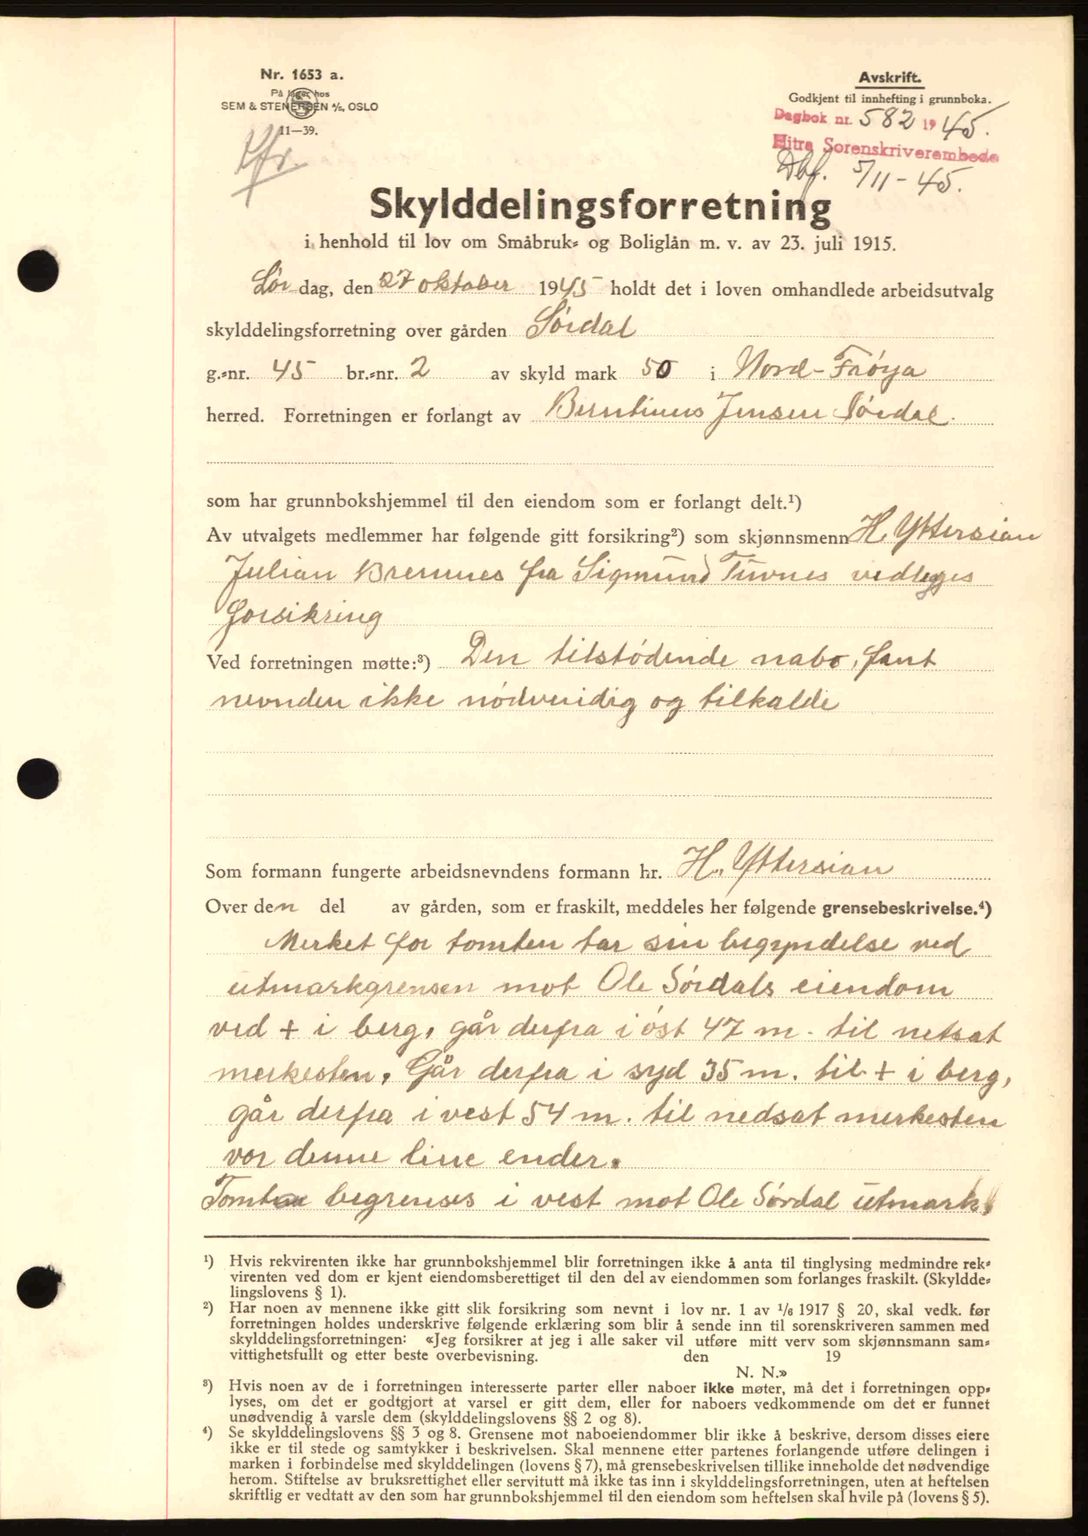 Nr. 1653 a.
På lager hos
SEM & STENERSEN A/S, OSLO
11—39.
Avskrift.
Godkjent til innhefting i grunnboka.
Dagbok nr. 582 1945.
Hitra Sorenskriverembede
Dbf. 5/11-45.
Skylddelingsforretning
i henhold til lov om Småbruk- og Boliglån m. v. av 23. juli 1915.
Lør dag, den 27 oktober 1945 holdt det i loven omhandlede arbeidsutvalg
skylddelingsforretning over gården Sørdal
g.-nr. 45 br.-nr. 2 av skyld mark 50 i Nord-Frøya
herred. Forretningen er forlangt av Berntinus Jensen Sørdal.
som har grunnbokshjemmel til den eiendom som er forlangt delt.¹)
Av utvalgets medlemmer har følgende gitt forsikring²) som skjønnsmenn H. Yttersian
Julian Bremnes fra Sigmund Tuvnes vedlegges
forsikring
Ved forretningen møtte:³) Den tilstødende nabo, fant
nevnden ikke nødvendig og tilkalde
Som formann fungerte arbeidsnevndens formann hr. H. Yttersian
Over den del av gården, som er fraskilt, meddeles her følgende grensebeskrivelse.⁴)
Merket for tomten tar sin begyndelse ved
utmarkgrensen mot Ole Sørdals eiendom
ved + i berg, går derfra i øst 47 m. til netsat
merkesten. Går derfra i syd 35 m. til + i berg,
går derfra i vest 54 m. til nedsat merkesten
vor denne line ender.
Tomten begrenses i vest mot Ole Sørdal utmark,
¹) Hvis rekvirenten ikke har grunnbokshjemmel blir forretningen ikke å anta til tinglysing medmindre rek-
virenten ved dom er kjent eiendomsberettiget til den del av eiendommen som forlanges fraskilt. (Skyldde-
lingslovens § 1).
²) Har noen av mennene ikke gitt slik forsikring som nevnt i lov nr. 1 av 1/6 1917 § 20, skal vedk. før
forretningen holdes underskrive følgende erklæring som blir å sende inn til sorenskriveren sammen med
skylddelingsforretningen: «Jeg forsikrer at jeg i alle saker vil utføre mitt verv som skjønnsmann sam-
vittighetsfullt og etter beste overbevisning. den 19
N. N.»
³) Hvis noen av de i forretningen interesserte parter eller naboer ikke møter, må det i forretningen opp-
lyses, om det er godtgjort at varsel er gitt dem, eller for naboers vedkommende om det er funnet
unødvendig å varsle dem (skylddelingslovens §§ 2 og 8).
⁴) Se skylddelingslovens §§ 3 og 8. Grensene mot naboeiendommer blir ikke å beskrive, dersom disses eiere
ikke er til stede og samtykker i beskrivelsen. Skal mennene etter partenes forlangende utføre delingen i
marken i forbindelse med skylddelingen (lovens § 7), må grensebeskrivelsen tillike inneholde det nødvendige
herom. Stiftelse av bruksrettighet eller servitutt må ikke tas inn i skylddelingsforretningen, uten at heftelsen
skriftlig er vedtatt av den som har grunnbokshjemmel til den eiendom som heftelsen skal hvile på (lovens § 5).